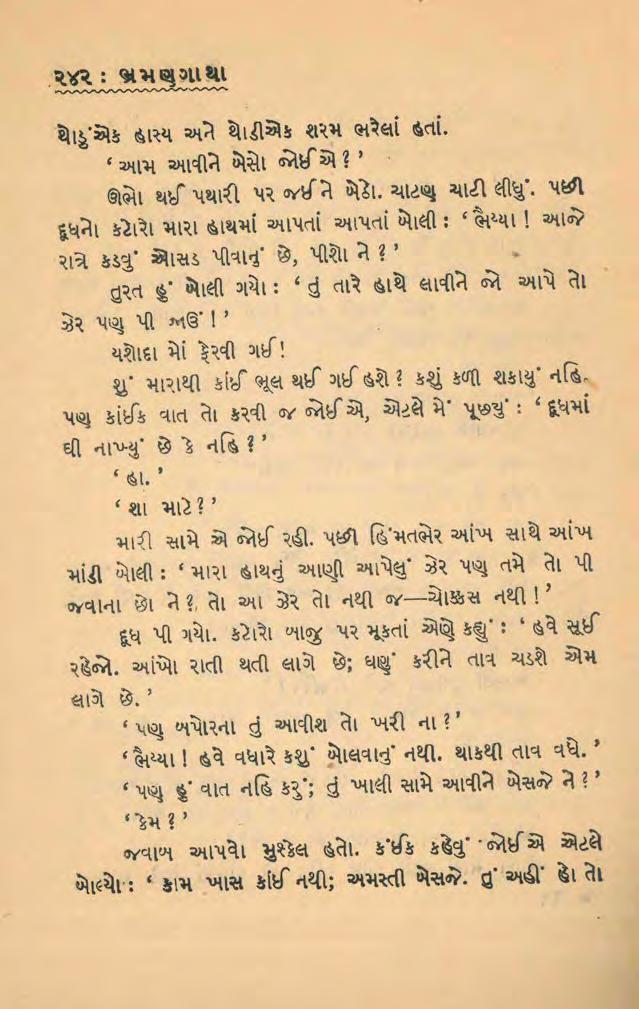 ૨૪૨ : ભ્રમણગાથા
થોડુંએક હાસ્ય અને થોડીએક શરમ ભરેલાં હતાં.
‘ આમ આવીને બેસો જોઈએ ? ’
ઊભો થઈ પથારી પર જઈને બેઠો. ચાટણ ચાટી લીધું. પછી
દૂધનો કટોરો મારા હાથમાં આપતાં આપતાં બોલી : ‘ ભૈય્યા ! આજે
રાત્રે કડવું ઓસડ પીવાનું છે, પીશો ને ? ’
તુરત હું બોલી ગયો : ‘ તું તારે હાથે લાવીને જો આપે તો
ઝેર પણ પી જાઉં ! ’
યશોદા મોં ફેરવી ગઈ !
શું મારાથી કાંઈ ભૂલ થઈ ગઈ હશે ? કશું કળી શકાયું નહિ.
પણ કાંઈક વાત તો કરવી જ જોઈએ, એટલે મેં પૂછ્યું : ‘ દૂધમાં
ઘી નાખ્યું છે કે નહિ ? ’
‘ હા. ’
‘ શા માટે ? ’
મારી સામે એ જોઈ રહી. પછી હિંમતભેર આંખ સાથે આંખ
માંડી બોલી : ‘ મારા હાથનું આણી આપેલું ઝેર પણ તમે તો પી
જવાના છો ને ? તો આ ઝેર તો નથી જ—ચોક્કસ નથી ! ’
દૂધ પી ગયો. કટોરો બાજુ પર મૂકતાં એણે કહ્યું : ‘ હવે સૂઈ
રહેજો. આંખો રાતી થતી લાગે છે; ઘણું કરીને તાવ ચડશે એમ
લાગે છે. ’
‘ પણ બપોરના તું આવીશ તો ખરી ના ? ’
‘ ભૈય્યા ! હવે વધારે કશું બોલવાનું નથી. થાકથી તાવ વધે. ’
‘ પણ હું વાત નહિ કરું; તું ખાલી સામે આવીને બેસજે ને ? ’
‘ કેમ ? ’
જવાબ આપવો મુશ્કેલ હતો. કંઈક કહેવું જોઈએ એટલે
બોલ્યો : ‘ કામ ખાસ કાંઈ નથી; અમસ્તી બેસજે. તું અહીં હો તો